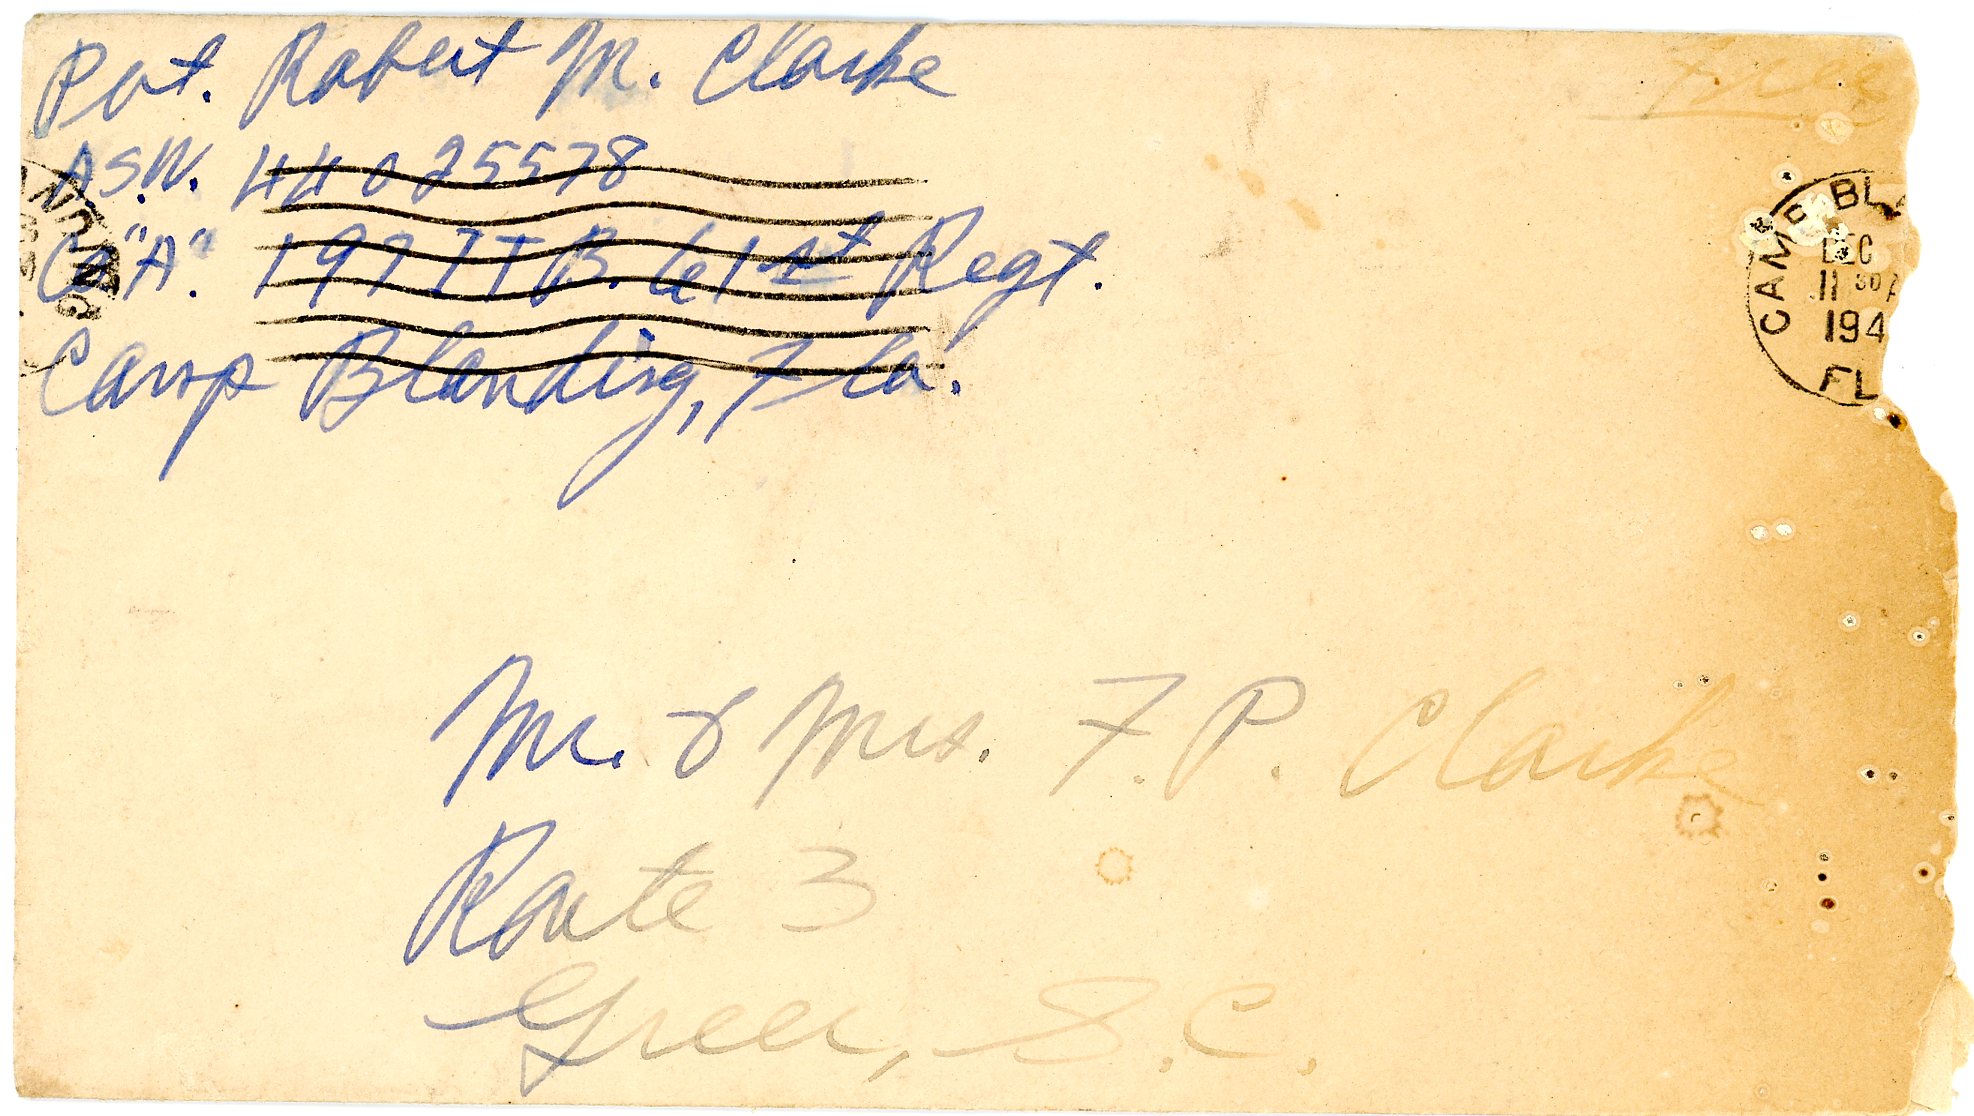 Pvt. Robert M. Clarke
Free
A.S.N. 44025578
Co "A". 197 ITB. 61st Regt.
Camp Blanding, Fla.
CAMP BLA
DEC
11 30 A
194
FL
NDING
Mr. & Mrs. F. P. Clarke
Route 3
Greer, S.C.